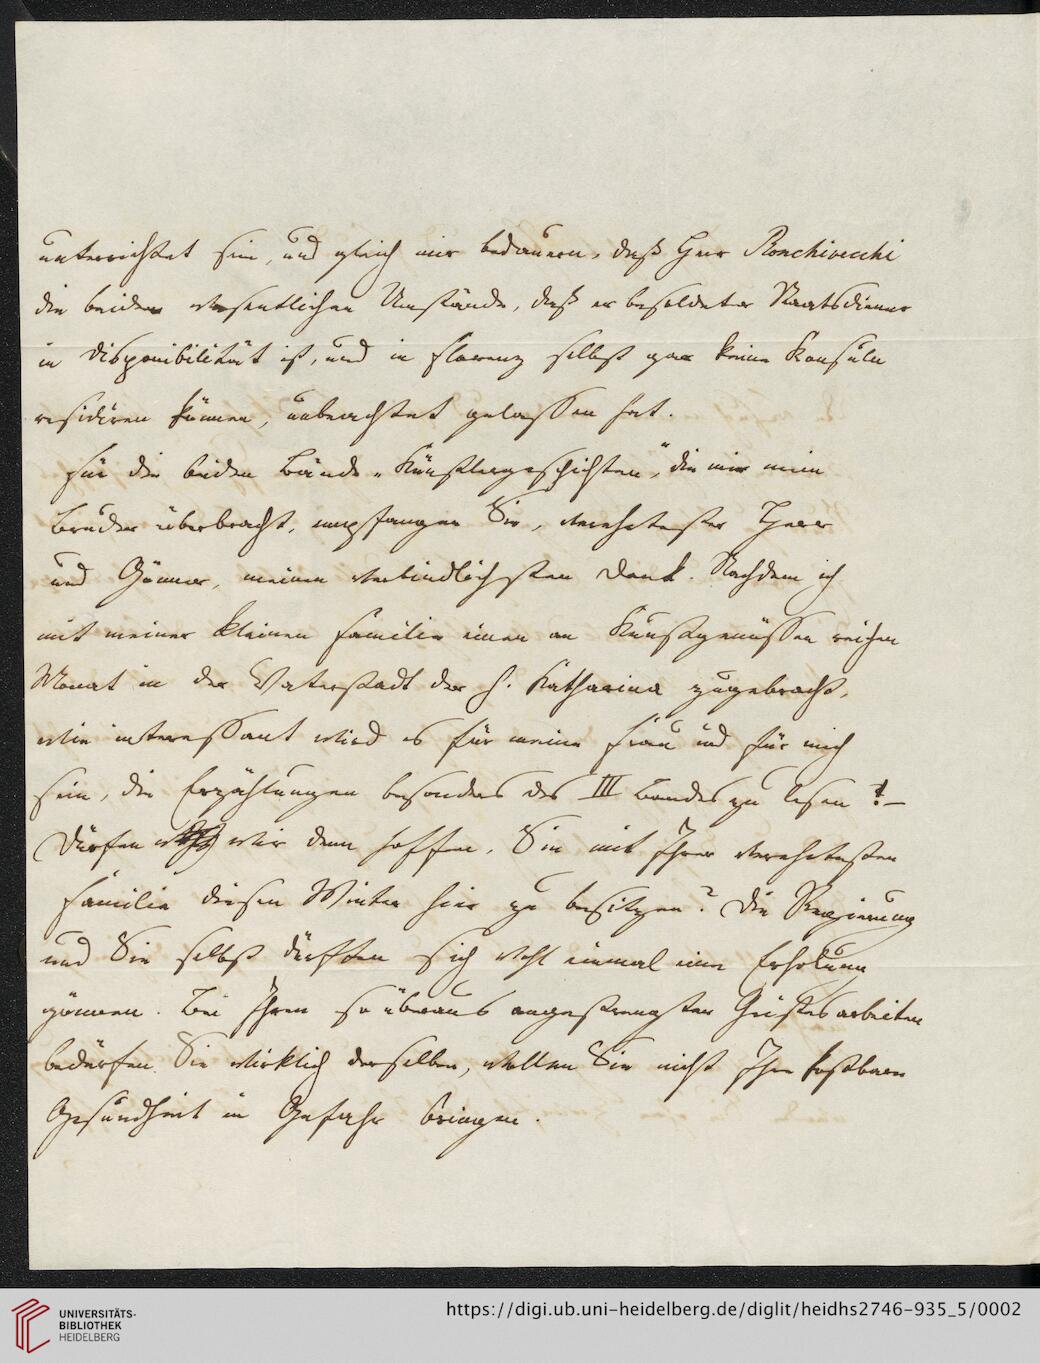 unterrichtet sein, und gleich mir bedauern, daß Herr Ronchivecchi
die beiden wesentlichen Umstände, daß er besoldeter Staatsdiener
in Disponibilität ist, und in Florenz selbst gar keine Konsuln
residiren können, unbeachtet gelassen hat.
Für die beiden Bände „Künstlergeschichten", die mir mein
Bruder überbracht, empfangen Sie, verehrtester Herr
und Gönner, meinen verbindlichsten Dank. Nachdem ich
mit meiner kleinen Familie einen an Kunstgenüssen reichen
Monat in der Vaterstadt der h. Katharina zugebracht,
wie interessant wird es für meine Frau und für mich
sein, die Erzählungen besonders des III Bandes zu lesen! –
Dürfen wir denn hoffen, Sie mit Ihrer verehrtesten
Familie diesen Winter hier zu besitzen? Die Regierung
und Sie selbst dürften sich wohl einmal eine Erholung
gönnen. Bei Ihren so überaus angestrengten Geistesarbeiten
bedürfen Sie wirklich derselben, wollen Sie nicht Ihre kostbare
Gesundheit in Gefahr bringen.
UNIVERSITÄTS-
BIBLIOTHEK
HEIDELBERG
https://digi.ub.uni-heidelberg.de/diglit/heidhs2746-935_5/0002